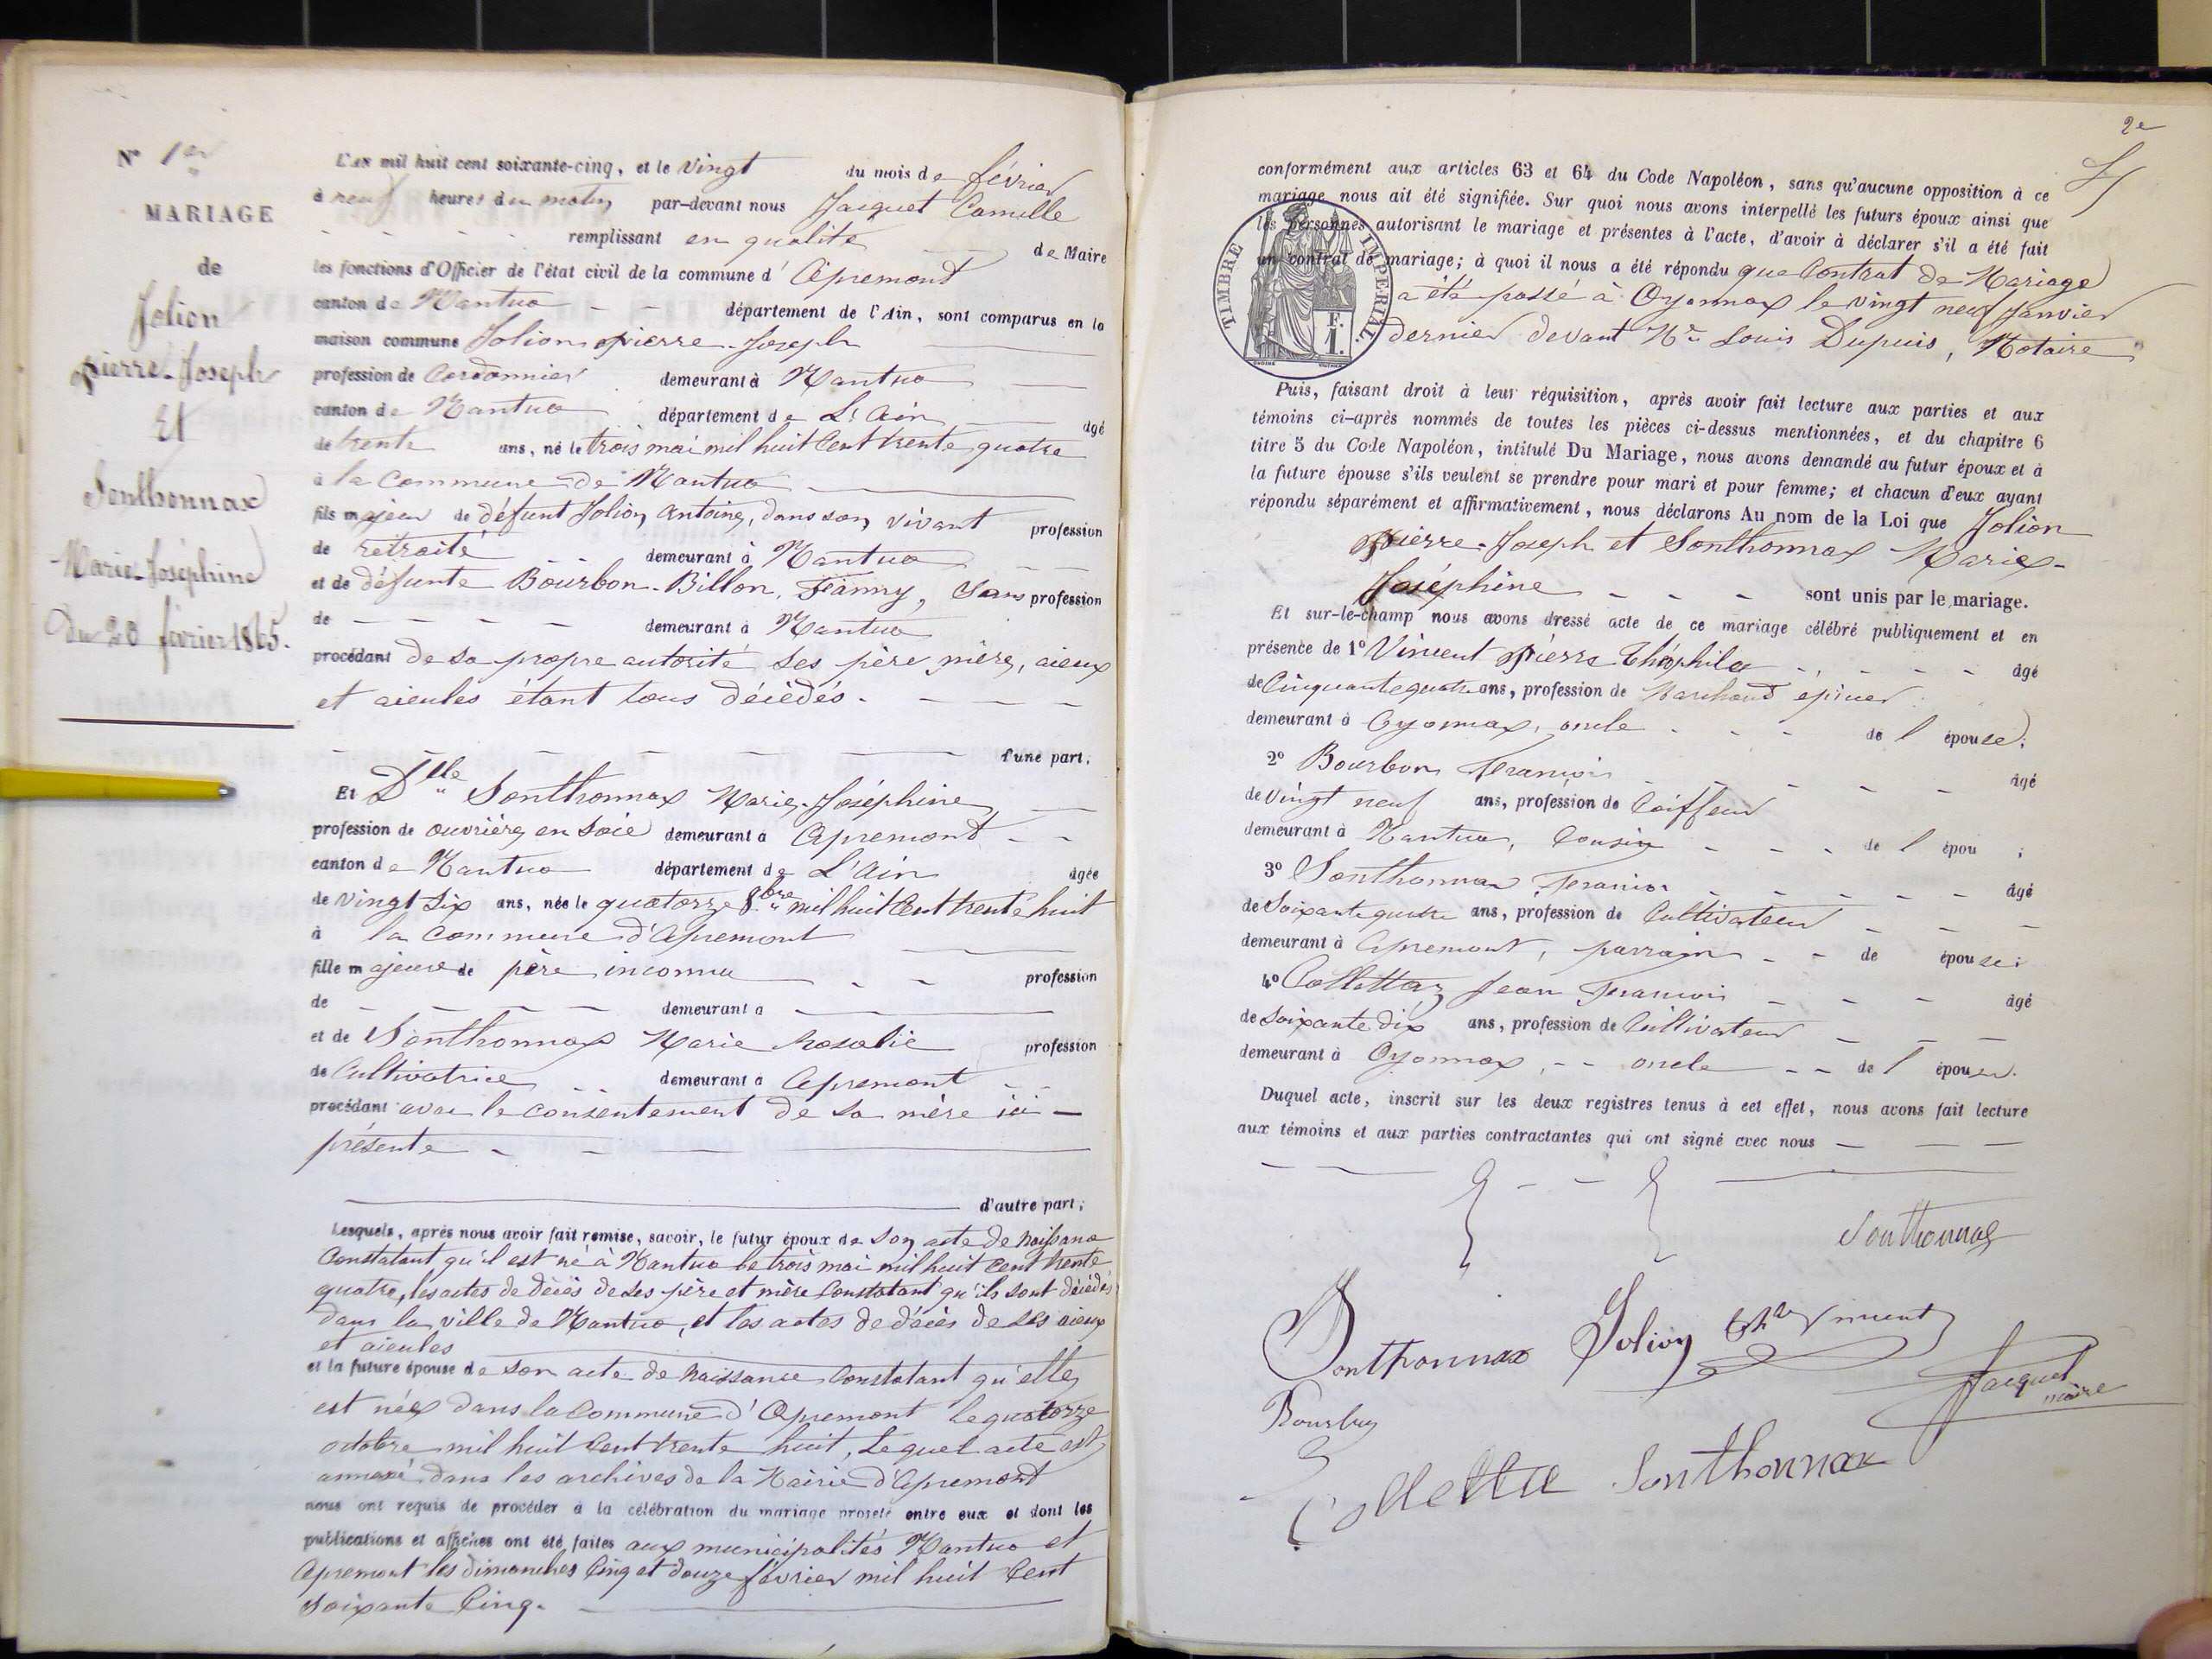 N° 1er
MARIAGE
de
Jolion
pierre-Joseph
Et
Sonthonnax
Marie-Joséphine
Du 20 février 1865.
L'AN mil huit cent soixante-cinq, et le vingt du mois de février
à neuf heures du matin par-devant nous Jacquet Camille
remplissant en qualité de Maire
les fonctions d'Officier de l'état civil de la commune d'Apremont
canton de Nantua département de l'Ain, sont comparus en la
maison commune Jolion pierre-Joseph
profession de Cordonnier demeurant à Nantua
canton de Nantua département de L'Ain âgé
de trente ans, né le trois mai mil huit Cent trente quatre
à la Commune de Nantua
fils majeur de défunt Jolion Antoine, dans son vivant profession
de retraité demeurant à Nantua
et de défunte Bourbon-Billon, Fanny, Sans profession
de demeurant à Nantua
procédant de sa propre autorité ses père mère, aieux
et aieules étant tous décédés.
d'une part;
Et Dlle Sonthonnax Marie-Joséphine
profession de ouvrière en Soie demeurant à Apremont
canton de Nantua département de L'Ain âgée
de vingt Six ans, née le quatorze 8bre mil huit Cent trente huit
à la Commune d'Apremont
fille majeure de père inconnu profession
de demeurant à
et de Sonthonnax Marie Rosalie profession
de Cultivatrice demeurant à Apremont
procédant avec le consentement de sa mère ici
présente
d'autre part;
Lesquels, après nous avoir fait remise, savoir, le futur époux de son acte de naissance
Constatant qu'il est né à Nantua le trois mai mil huit Cent trente
quatre, les actes de décès de ses père et mère Constatant qu'ils sont décédés
dans la ville de Nantua, et les actes de décès de ses aieux
et aieules
et la future épouse de son acte de naissance Constatant qu'elle
est née dans la Commune d'Apremont le quatorze
octobre mil huit Cent trente huit, Lequel acte est
annexé dans les archives de la Mairie d'Apremont
nous ont requis de procéder à la célébration du mariage projeté entre eux et dont les
publications et affiches ont été faites aux municipalités Nantua et
Apremont les dimanches Cinq et douze février mil huit Cent
soixante Cinq.
2e
conformément aux articles 63 et 64 du Code Napoléon, sans qu'aucune opposition à ce
mariage nous ait été signifiée. Sur quoi nous avons interpellé les futurs époux ainsi que
les personnes autorisant le mariage et présentes à l'acte, d'avoir à déclarer s'il a été fait
un contrat de mariage; à quoi il nous a été répondu que Contrat de Mariage
a été passé à Oyonnax le vingt neuf Janvier
dernier devant Me Louis Dupuis, Notaire
TIMBRE IMPERIAL.
F.
1.
Puis, faisant droit à leur réquisition, après avoir fait lecture aux parties et aux
témoins ci-après nommés de toutes les pièces ci-dessus mentionnées, et du chapitre 6
titre 5 du Code Napoléon, intitulé Du Mariage, nous avons demandé au futur époux et à
la future épouse s'ils veulent se prendre pour mari et pour femme; et chacun d'eux ayant
répondu séparément et affirmativement, nous déclarons Au nom de la Loi que Jolion
pierre-Joseph et Sonthonnax Marie-
Joséphine sont unis par le mariage.
Et sur-le-champ nous avons dressé acte de ce mariage célébré publiquement et en
présence de 1° Vincent pierre Théophile âgé
de Cinquante quatre ans, profession de Marchand épicier
demeurant à Oyonnax, oncle de l'épouse;
2° Bourbon François âgé
de vingt neuf ans, profession de Coiffeur
demeurant à Nantua, Cousin de l'épou ;
3° Sonthonnax François âgé
de Soixante quatre ans, profession de Cultivateur
demeurant à Apremont, parrain de épouse;
4° Collettaz Jean François âgé
de Soixante dix ans, profession de Cultivateur
demeurant à Oyonnax, oncle de l'épouse.
Duquel acte, inscrit sur les deux registres tenus à cet effet, nous avons fait lecture
aux témoins et aux parties contractantes qui ont signé avec nous
Sonthonnax
Sonthonnax Jolion Vincent
Jacquet
maire
Bourbon
Collettaz Sonthonnax